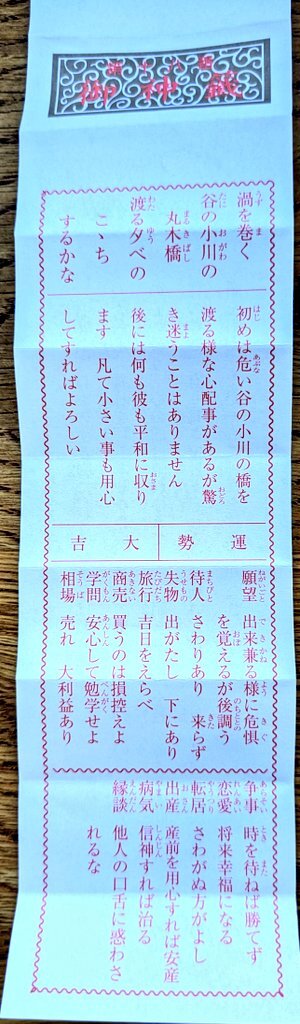 御神籤
渦を巻く
谷の小川の
丸木橋
渡る夕べの
こゝち
するかな
初めは危い谷の小川の橋を
渡る様な心配事があるが驚
き迷うことはありません
後には何も彼も平和に収り
ます 凡て小さい事も用心
してすればよろしい
運勢 大吉
願望 出来兼る様に危惧
を覚えるが後調う
待人 さわりあり 来らず
失物 出がたし 下にあり
旅行 吉日をえらべ
商売 買うのは損控えよ
学問 安心して勉学せよ
相場 売れ 大利益あり
争事 時を待ねば勝てず
恋愛 将来幸福になる
転居 さわがぬ方がよし
出産 産前を用心すれば安産
病気 信神すれば治る
縁談 他人の口舌に惑わさ
れるな